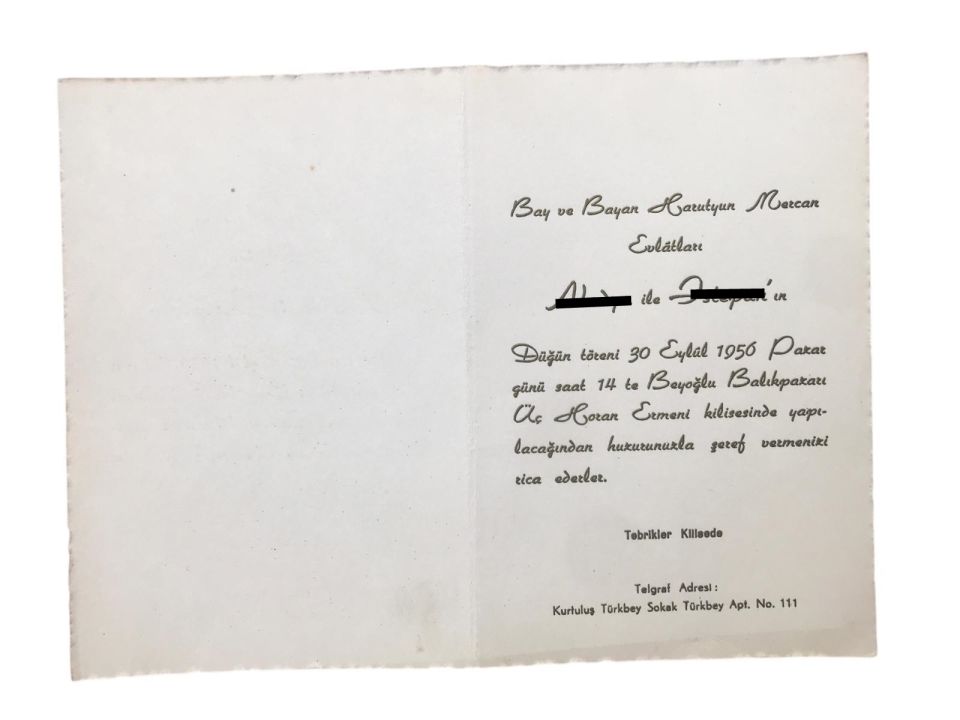 Bay ve Bayan Harutyun Mercan
Evlâtları
ile 'ın
Düğün töreni 30 Eylûl 1956 Pazar
günü saat 14 te Beyoğlu Balıkpazarı
Üç Horan Ermeni kilisesinde yapı-
lacağından huzurunuzla şeref vermenizi
rica ederler.
Tebrikler Kilisede
Telgraf Adresi :
Kurtuluş Türkbey Sokak Türkbey Apt. No. 111